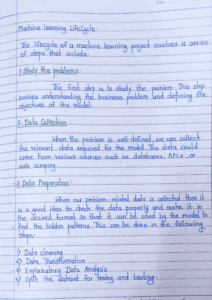 Machine learning LifeCycle:
The lifecycle of a machine learning project involves a series
of steps that include:
1. Study the problems:
The first step is to study the problem. This step
involves understanding the business problem and defining the
objectives of the model.
2. Data Collection
When the problem is well-defined, we can collect
the relevant data required for the model. The data could
come from various sources such as databases, APIs, or
web scraping.
3. Data Preparation:
When our problem related data is collected then it
is a good idea to check the data properly and make it in
the desired format so that it can be used by the model to
find the hidden patterns. This can be done in the following
steps:
1) Data cleaning
2) Data Transformation
3) Explanatory Data Analysis
4) Split the dataset for training and testing.